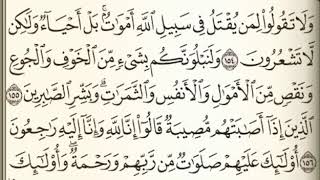 وَلَا تَقُولُوا۟ لِمَن يُقْتَلُ فِى سَبِيلِ ٱللَّهِ أَمْوَٰتٌۢ ۚ بَلْ أَحْيَآءٌ وَلَٰكِن
لَّا تَشْعُرُونَ ١٥٤ وَلَنَبْلُوَنَّكُم بِشَىْءٍ مِّنَ ٱلْخَوْفِ وَٱلْجُوعِ
وَنَقْصٍ مِّنَ ٱلْأَمْوَٰلِ وَٱلْأَنفُسِ وَٱلثَّمَرَٰتِ ۗ وَبَشِّرِ ٱلصَّٰبِرِينَ ١٥٥
ٱلَّذِينَ إِذَآ أَصَٰبَتْهُم مُّصِيبَةٌ قَالُوٓا۟ إِنَّا لِلَّهِ وَإِنَّآ إِلَيْهِ رَٰجِعُونَ
١٥٦ أُو۟لَٰٓئِكَ عَلَيْهِمْ صَلَوَٰتٌ مِّن رَّبِّهِمْ وَرَحْمَةٌ ۖ وَأُو۟لَٰٓئِكَ